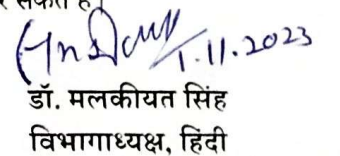 1.11.2023
डॉ. मलकीयत सिंह
विभागाध्यक्ष, हिंदी